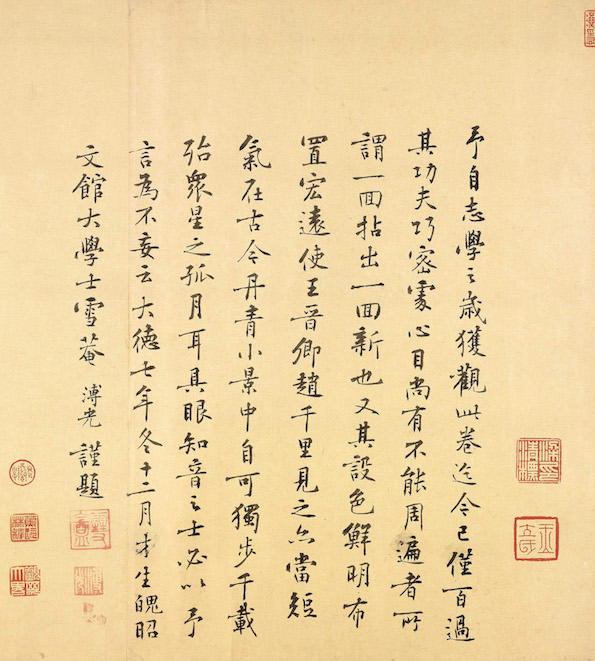 予自志學之歲獲觀此卷迄今已僅百過
其功夫巧密處心目尚有不能周遍者所
謂一面拈出一面新也又其設色鮮明布
置宏遠使王晉卿趙千里見之亦當短
氣在古今丹青小景中自可獨步千載
殆衆星之孤月耳具眼知音之士必以予
言為不妄云大德七年冬十二月才生魄昭
文館大學士雪菴溥光謹題